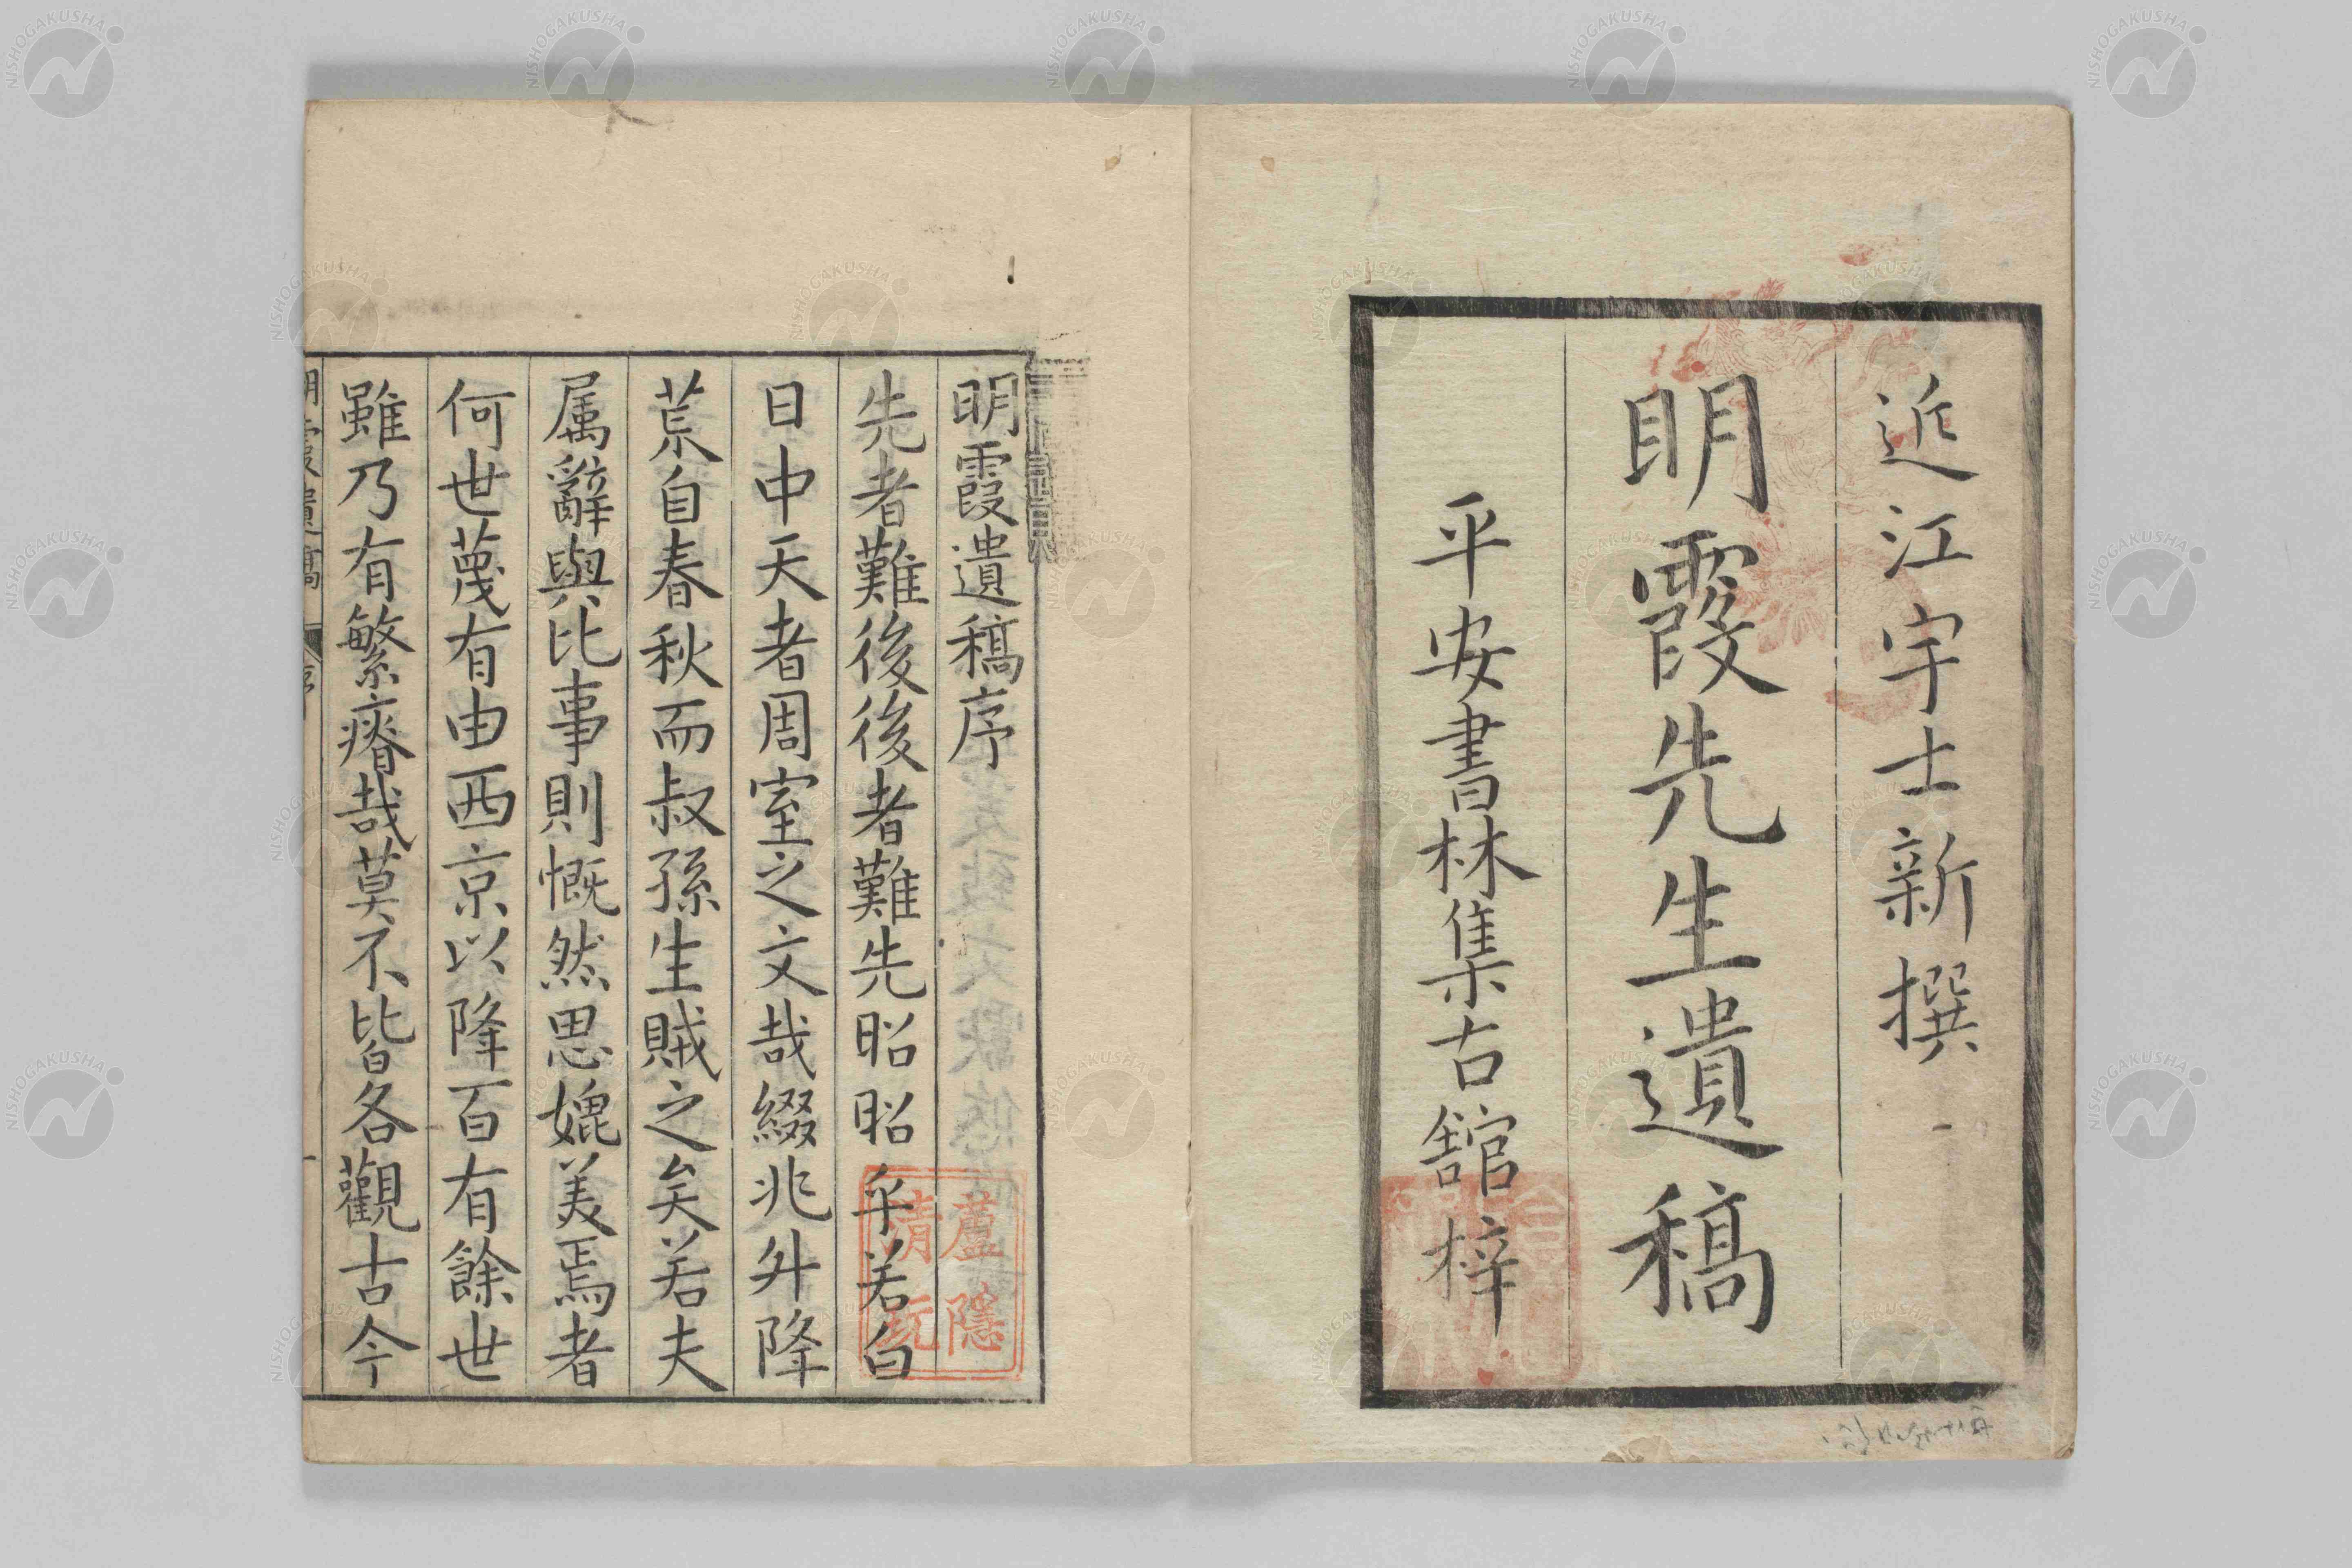 近江宇士新撰
明霞先生遺稿
平安書林集古舘梓
明霞遺稿序
先者難後後者難先昭昭乎若白
日中天者周室之文哉綴兆舛降
荒自春秋而叔孫生賊之矣若夫
属辭與比事則慨然思媲美焉者
何世蔑有由西京以降百有餘世
雖乃有繁瘠哉莫不皆各觀古今
明霞遺稿 序
蘆隱
清玩
NISHOGAKUSHA